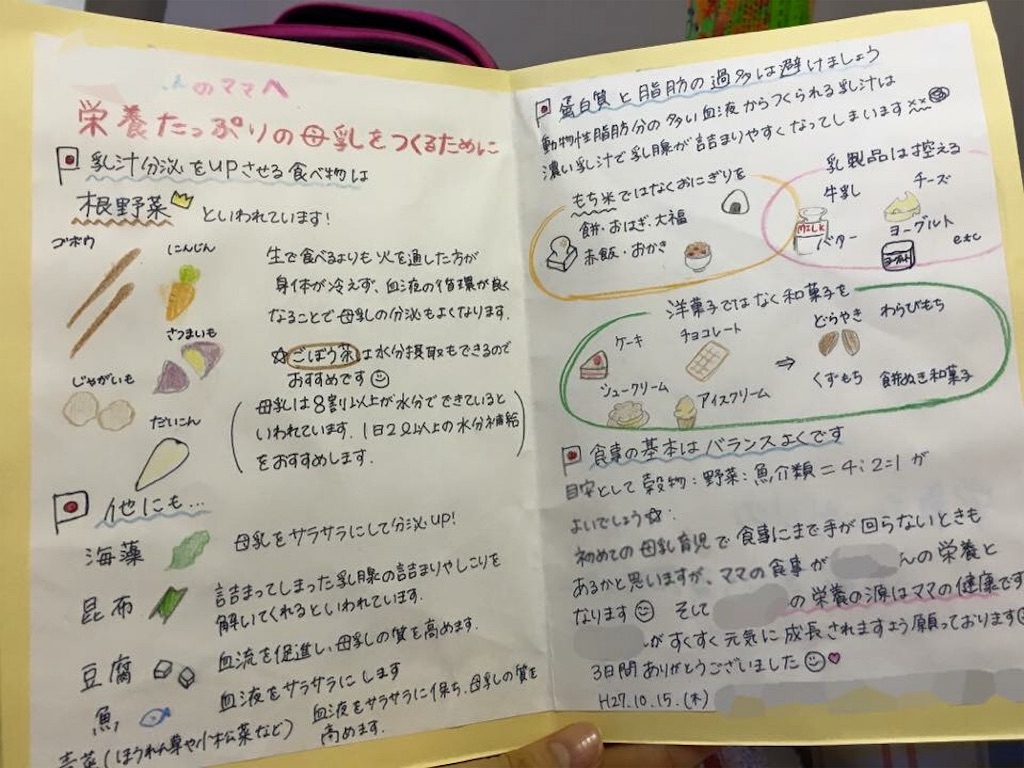 のママへ
栄養たっぷりの母乳をつくるために
乳汁分泌をUPさせる食べ物は
根野菜といわれています!
ゴボウ
にんじん
さつまいも
じゃがいも
だいこん
生で食べるよりも火を通した方が
身体が冷えず、血液の循環が良く
なることで母乳の分泌もよくなります.
☆ごぼう茶は水分摂取もできるので
おすすめです
(母乳は8割以上が水分でできていると
いわれています.1日2L以上の水分補給
をおすすめします.)
他にも…
海藻 母乳をサラサラにして分泌UP!
昆布 詰まってしまった乳腺の詰まりやしこりを
解いてくれるといわれています.
豆腐 血流を促進し、母乳の質を高めます.
魚 血液をサラサラにします
青菜(ほうれん草や小松菜など) 血液をサラサラに保ち、母乳の質を
高めます.
蛋白質と脂肪の過多は避けましょう
動物性脂肪分の多い血液からつくられる乳汁は
濃い乳汁で乳腺が詰まりやすくなってしまいます
もち米ではなくおにぎりを
餅・おはぎ・大福
赤飯・おかき
乳製品は控える
牛乳
チーズ
MILK
バター
ヨーグルト
ヨーグルト
etc
洋菓子ではなく和菓子を
ケーキ
チョコレート
シュークリーム
アイスクリーム
⇒
どらやき
わらびもち
くずもち
餅ぬき和菓子
食事の基本はバランスよくです
目安として穀物:野菜:魚介類=4:2:1が
よいでしょう☆.
初めての母乳育児で食事にまで手が回らないときも
あるかと思いますが、ママの食事が
んの栄養と
なります そして
の栄養の源はママの健康です
がすくすく元気に成長されますよう願っております
3日間ありがとうございました
H27.10.15.(木)